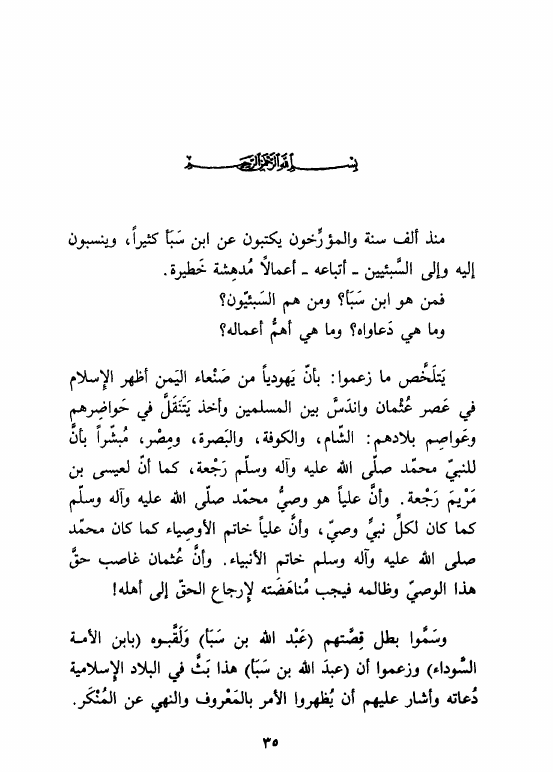 بسم الله الرحمن الرحيم
منذ ألف سنة والمؤرِّخون يكتبون عن ابن سَبَأ كثيراً، وينسبون
إليه وإلى السَّبئيين - أتباعه - أعمالًا مُدهِشة خَطيرة.
فمن هو ابن سَبَأ؟ ومن هم السَبئيّون؟
وما هي دَعاواه؟ وما هي أهمُّ أعماله؟
يَتلَخَّص ما زعموا: بأنّ يَهودياً من صَنْعاء اليَمن أظهر الإِسلام
في عَصر عُثْمان واندَسَّ بين المسلمين وأخذ يَتَنَقَلَّ في حَواضِرهم
وعَواصِم بلادهم: الشّام، والكوفة، والبَصرة، ومِصْر، مُبشّراً بأنَّ
للنبيّ محمّد صلّى الله عليه وآله وسلّم رَجْعة، كما أنّ لعيسى بن
مَرْيمَ رَجْعة. وأنَّ علياً هو وصيُّ محمّد صلّى الله عليه وآله وسلّم
كما كان لكلِّ نبيٍّ وصيّ، وأنَّ علياً خاتم الأوصِياء كما كان محمّد
صلى الله عليه وآله وسلم خاتم الأنبياء. وأنَّ عُثمان غاصب حقَّ
هذا الوصيّ وظالمه فيجب مُناهَضَته لإِرجاع الحقّ إلى أهله!
وسَمَّوا بطل قِصَّتهم (عَبْد الله بن سَبَأ) وَلَقَّبـوه (بابن الأمـة
السَّوداء) وزعموا أن (عبدَ الله بن سَبَأ) هذا بَثَّ في البلاد الإِسلامية
دُعاته وأشار عليهم أن يُظهروا الأمر بالمَعْروف والنهي عن المُنْكَر.
٣٥